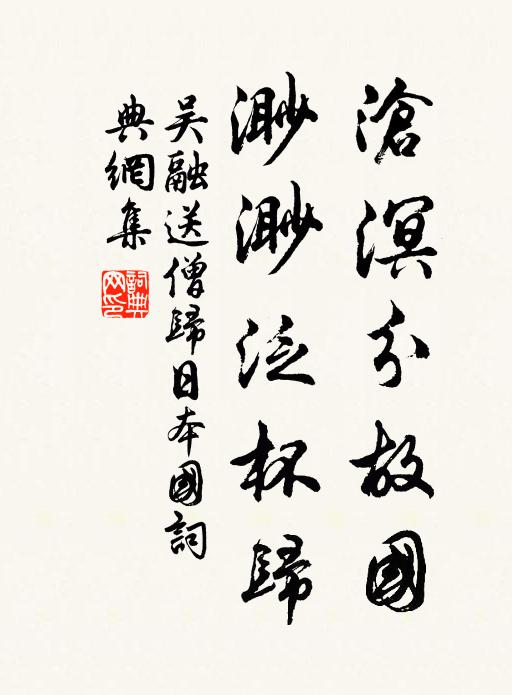 滄溟分故國
渺渺泛杯歸
吴融送僧歸日本國詞
典網集
詞典
网印